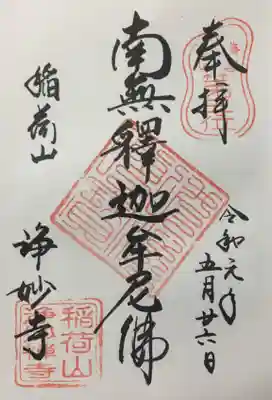 奉拝
令和元年
五月廿六日
南無釋迦牟尼佛
稲荷山
浄妙寺
稲荷山